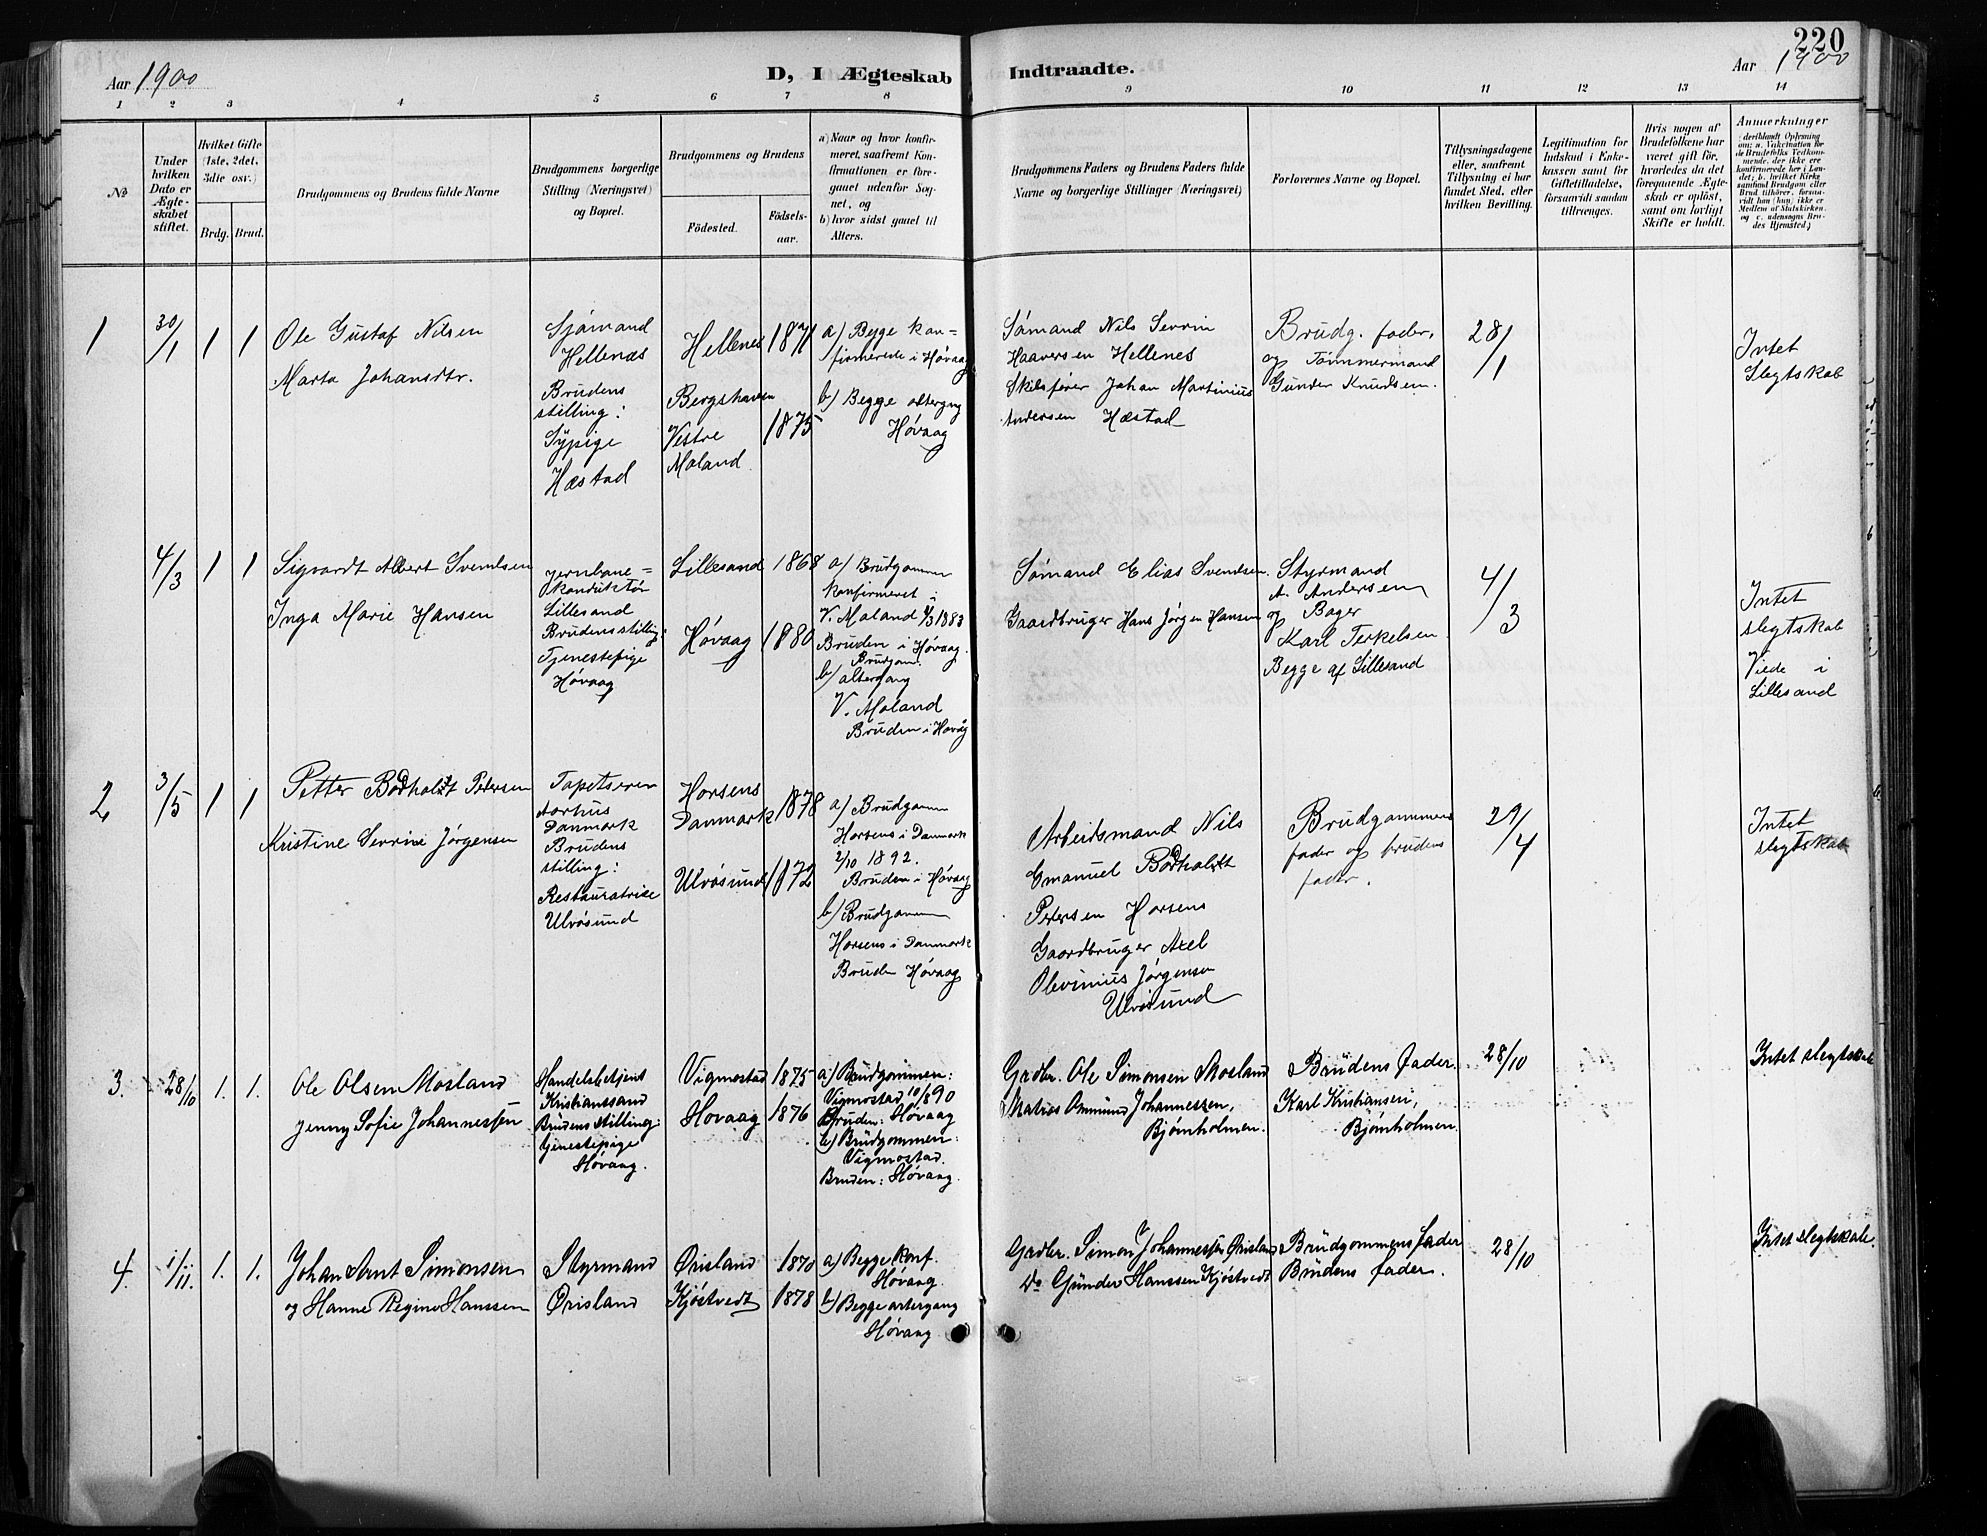 220
Aar 1900
D, I Ægteskab
Indtraadte.
Aar 1900
1 2 3 4 5 6 7 8 9 10 11 12 13 14
No
Under
hvilken
Dato er
Ægte-
skabet
stiftet.
Hvilket Gifte
(1ste, 2det,
3die osv.)
Brdg. Brud.
Brudgommens og Brudens fulde Navne
Brudgommens borgerlige
Stilling (Næringsvei)
og Bopæl.
Brudgommens og Brudens
Fødested.
Fødsels-
aar.
a) Naar og hvor konfir-
meret, saafremt Kon-
firmationen er fore-
gaaet udenfor Sog-
net, og
b) hvor sidst gaaet til
Alters.
Brudgommens Faders og Brudens Faders fulde
Navne og borgerlige Stillinger (Næringsvei)
Forlovernes Navne og Bopæl.
Tillysningsdagene
eller, saafremt
Tillysning ei har
fundet Sted, efter
hvilken Bevilling.
Legitimation for
Indskud i Enke-
kassen samt for
Giftetilladelse,
forsaavidt saadan
tiltrænges.
Hvis nogen af
Brudefolkene har
været gift før,
hvorledes da det
foregaaende Ægte-
skab er opløst,
samt om lovligt
Skifte er holdt.
Anmærkninger
(deriblandt Oplysning
om: a. Vakcination for
de Brudefolks Vedkom-
mende, der ikke ere
konfirmerede her i Lan-
det; b. hvilket Kirke-
samfund Brudgom eller
Brud tilhører, forsaa-
vidt han (hun) ikke er
Medlem af Statskirken,
og c. udensogns Bru-
des Hjemsted.)
1
30/1
1 1
Ole Gustaf Nilsen
Marta Johansdtr.
Sjømand
Hellenæs
Brudens
stilling:
Sypige
Hæstad
Hellenes
Bergshaven
Vestre
Moland
1871
1875
a) Begge kon=
firmerede i Høvaag
b) Begge altergng
Høvaag
Sømand Nils Sevrin
Haaversen Hellenes
Skibsfører Johan Martinius
Andersen Hæstad
Brudg. fader,
og Tømmermand
Gunder Knudsen.
28/1
Intet
Slegtskab
4/3
1 1
Sigvardt Albert Svendsen
Inga Marie Hansen
jernbane=
konduktør
Lillesand
Brudens stilling:
Tjenestepige
Høvaag
Lillesand
Høvaag
1868
1880
a) Brudgommen
konfirmeret i
V. Moland 4/3 1883
Bruden i Høvaag.
Brudgom.
b) altergang
V. Moland
Bruden i Høvåg
Sømand Elias Svendsen.
Gaardbruger Hans Jørgen Hansen
Styrmand
A. Andersen
og Bager
Karl Terkelsen.
Begge af Lillesand
4/3
Intet
slegtskab
Viede i
Lillesand
2
3/5
1 1
Petter Bødholdt Petersen
Kristine Sevrine Jørgensen
Tapetserer
Aarhus
Danmark
Brudens
stilling:
Restauratrise
Ulvøsund
Horsens
Danmark
Ulvøsund
1878
1872
a) Brudgommen
Horsens i Danmark
2/10 1892.
Bruden i Høvaag
b) Brudgommen
Horsens i Danmark
Bruden Høvaag
Arbeidsmand Nils
Emanuel Bødholdt
Petersen Horsens
Gaardbruger Axel
Olevinius Jørgensen
Ulvøsund
Brudgommens
fader og brudens
fader.
29/4
Intet
slegtskab
3.
28/10
1. 1.
Ole Olsen Mosland
Jenny Sofie Johannessen
Handelsbetjent
Kristianssand
Brudens Stilling:
tjenestepige
Høvaag.
Vigmostad
Høvaag
1875
1876
a) Brudgommen:
Vigmostad 10/8 90
Bruden: Høvaag
b) Brudgommen:
Vigmostad.
Bruden: Høvaag.
Grdbr. Ole Simonsen Mosland
Matros Ommund Johannessen,
Bjørnholmen.
Brudens fader.
Karl Kristiansen,
Bjørnholmen.
28/10
Intet slegtskab
4.
1/11.
1. 1.
Johan Arnt Simonsen
og Hanne Regine Hanssen
Styrmand
Ørisland
Ørisland
Kjøstvedt
1870
1878
a) Begge konf.
Høvaag.
b) Begge artergang
Høvaag
Grdbr. Simon Johannessen Ørisland
Do Gunder Hanssen Kjøstvedt
Brudgommens fader
Brudens fader.
28/10
Intet slegtskab.